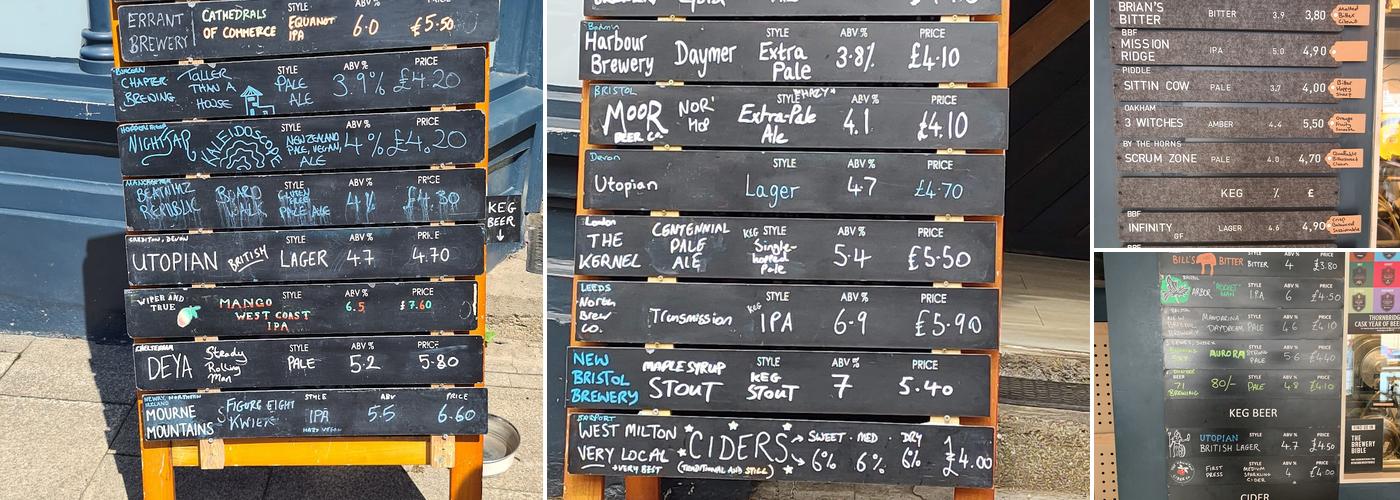 ERRANT BREWERY CATHEDRALS OF COMMERCE STYLE EQUANOT IPA ABV % 6.0 PRICE £5.50
CHAPTER BREWING TALLER THAN A HOUSE STYLE PALE ALE ABV % 3.9% PRICE £4.20
NIGHTJAR KALEIDOSCOPE STYLE NEW ZEALAND PALE, VEGAN, ALE ABV % 4% PRICE £4.20
BEATNIKZ REPUBLIC BOARD WALK STYLE GLUTEN FREE PALE ALE ABV % 4% PRICE £4.30
KEG BEER ↓
CREDITON, DEVON UTOPIAN BRITISH STYLE LAGER ABV % 4.7 PRICE 4.70
WIPER AND TRUE MANGO WEST COAST IPA STYLE ABV % 6.5 PRICE £7.60
CHELTENHAM DEYA Steady Rolling Man STYLE PALE ABV % 5.2 PRICE 5.80
NEWRY, NORTHERN IRELAND MOURNE MOUNTAINS FIGURE EIGHT KWIEK STYLE IPA ABV % 5.5 PRICE 6.60
Harbour Brewery Daymer STYLE Extra Pale ABV % 3.8% PRICE £4.10
BRISTOL MOOR BEER CO. NOR' HOP STYLE "HAZY" Extra-Pale Ale ABV % 4.1 PRICE £4.10
Devon Utopian STYLE Lager ABV % 4.7 PRICE £4.70
London THE KERNEL CENTENNIAL PALE ALE KEG STYLE Single-hopped Pale ABV % 5.4 PRICE £5.50
LEEDS North Brew Co. Transmission KEG STYLE IPA ABV % 6.9 PRICE £5.90
NEW BRISTOL BREWERY MAPLE SYRUP STOUT STYLE KEG STOUT ABV % 7 PRICE 5.40
WEST MILTON VERY LOCAL + VERY BEST CIDERS (TRADITIONAL AND STILL) SWEET 6% MED 6% DRY 6% £4.00
BRIAN'S BITTER BITTER 3.9 3,80 Malted Bitter
BBF
MISSION RIDGE IPA 5.0 4,90
PIDDLE
SITTIN COW PALE 3.7 4,00 Bitter Hoppy
OAKHAM
3 WITCHES AMBER 4.4 5,50 Orange Fruity Smooth
BY THE HORNS
SCRUM ZONE PALE 4.0 4,70 Bittersweet Clean
KEG % £
BBF
INFINITY GF LAGER 4.6 4,90 Crisp Balanced Sustainable
BBF
BILL'S BITTER STYLE BITTER ABV % 4 PRICE £3.80
BRISTOL ARBOR 'ROCKET MAN' STYLE IPA ABV % 6 PRICE £4.50
NEW BRISTOL BREWERY MANDARINA DAYDREAM STYLE PALE ABV % 4.6 PRICE £4.10
AURORA STYLE STRONG PALE ABV % 5.6 PRICE £4.40
71 BREWING 80/- STYLE PALE ABV % 4.8 PRICE £4.10
KEG BEER
UTOPIAN BRITISH LAGER STYLE ABV % 4.7 PRICE £4.50
FIRST PRESS STYLE MEDIUM SPARKLING CIDER ABV % PRICE £4.00
CIDER
THORNBRIDGE
CASK YEAR OF BEER
THE BREWERY BIBLE